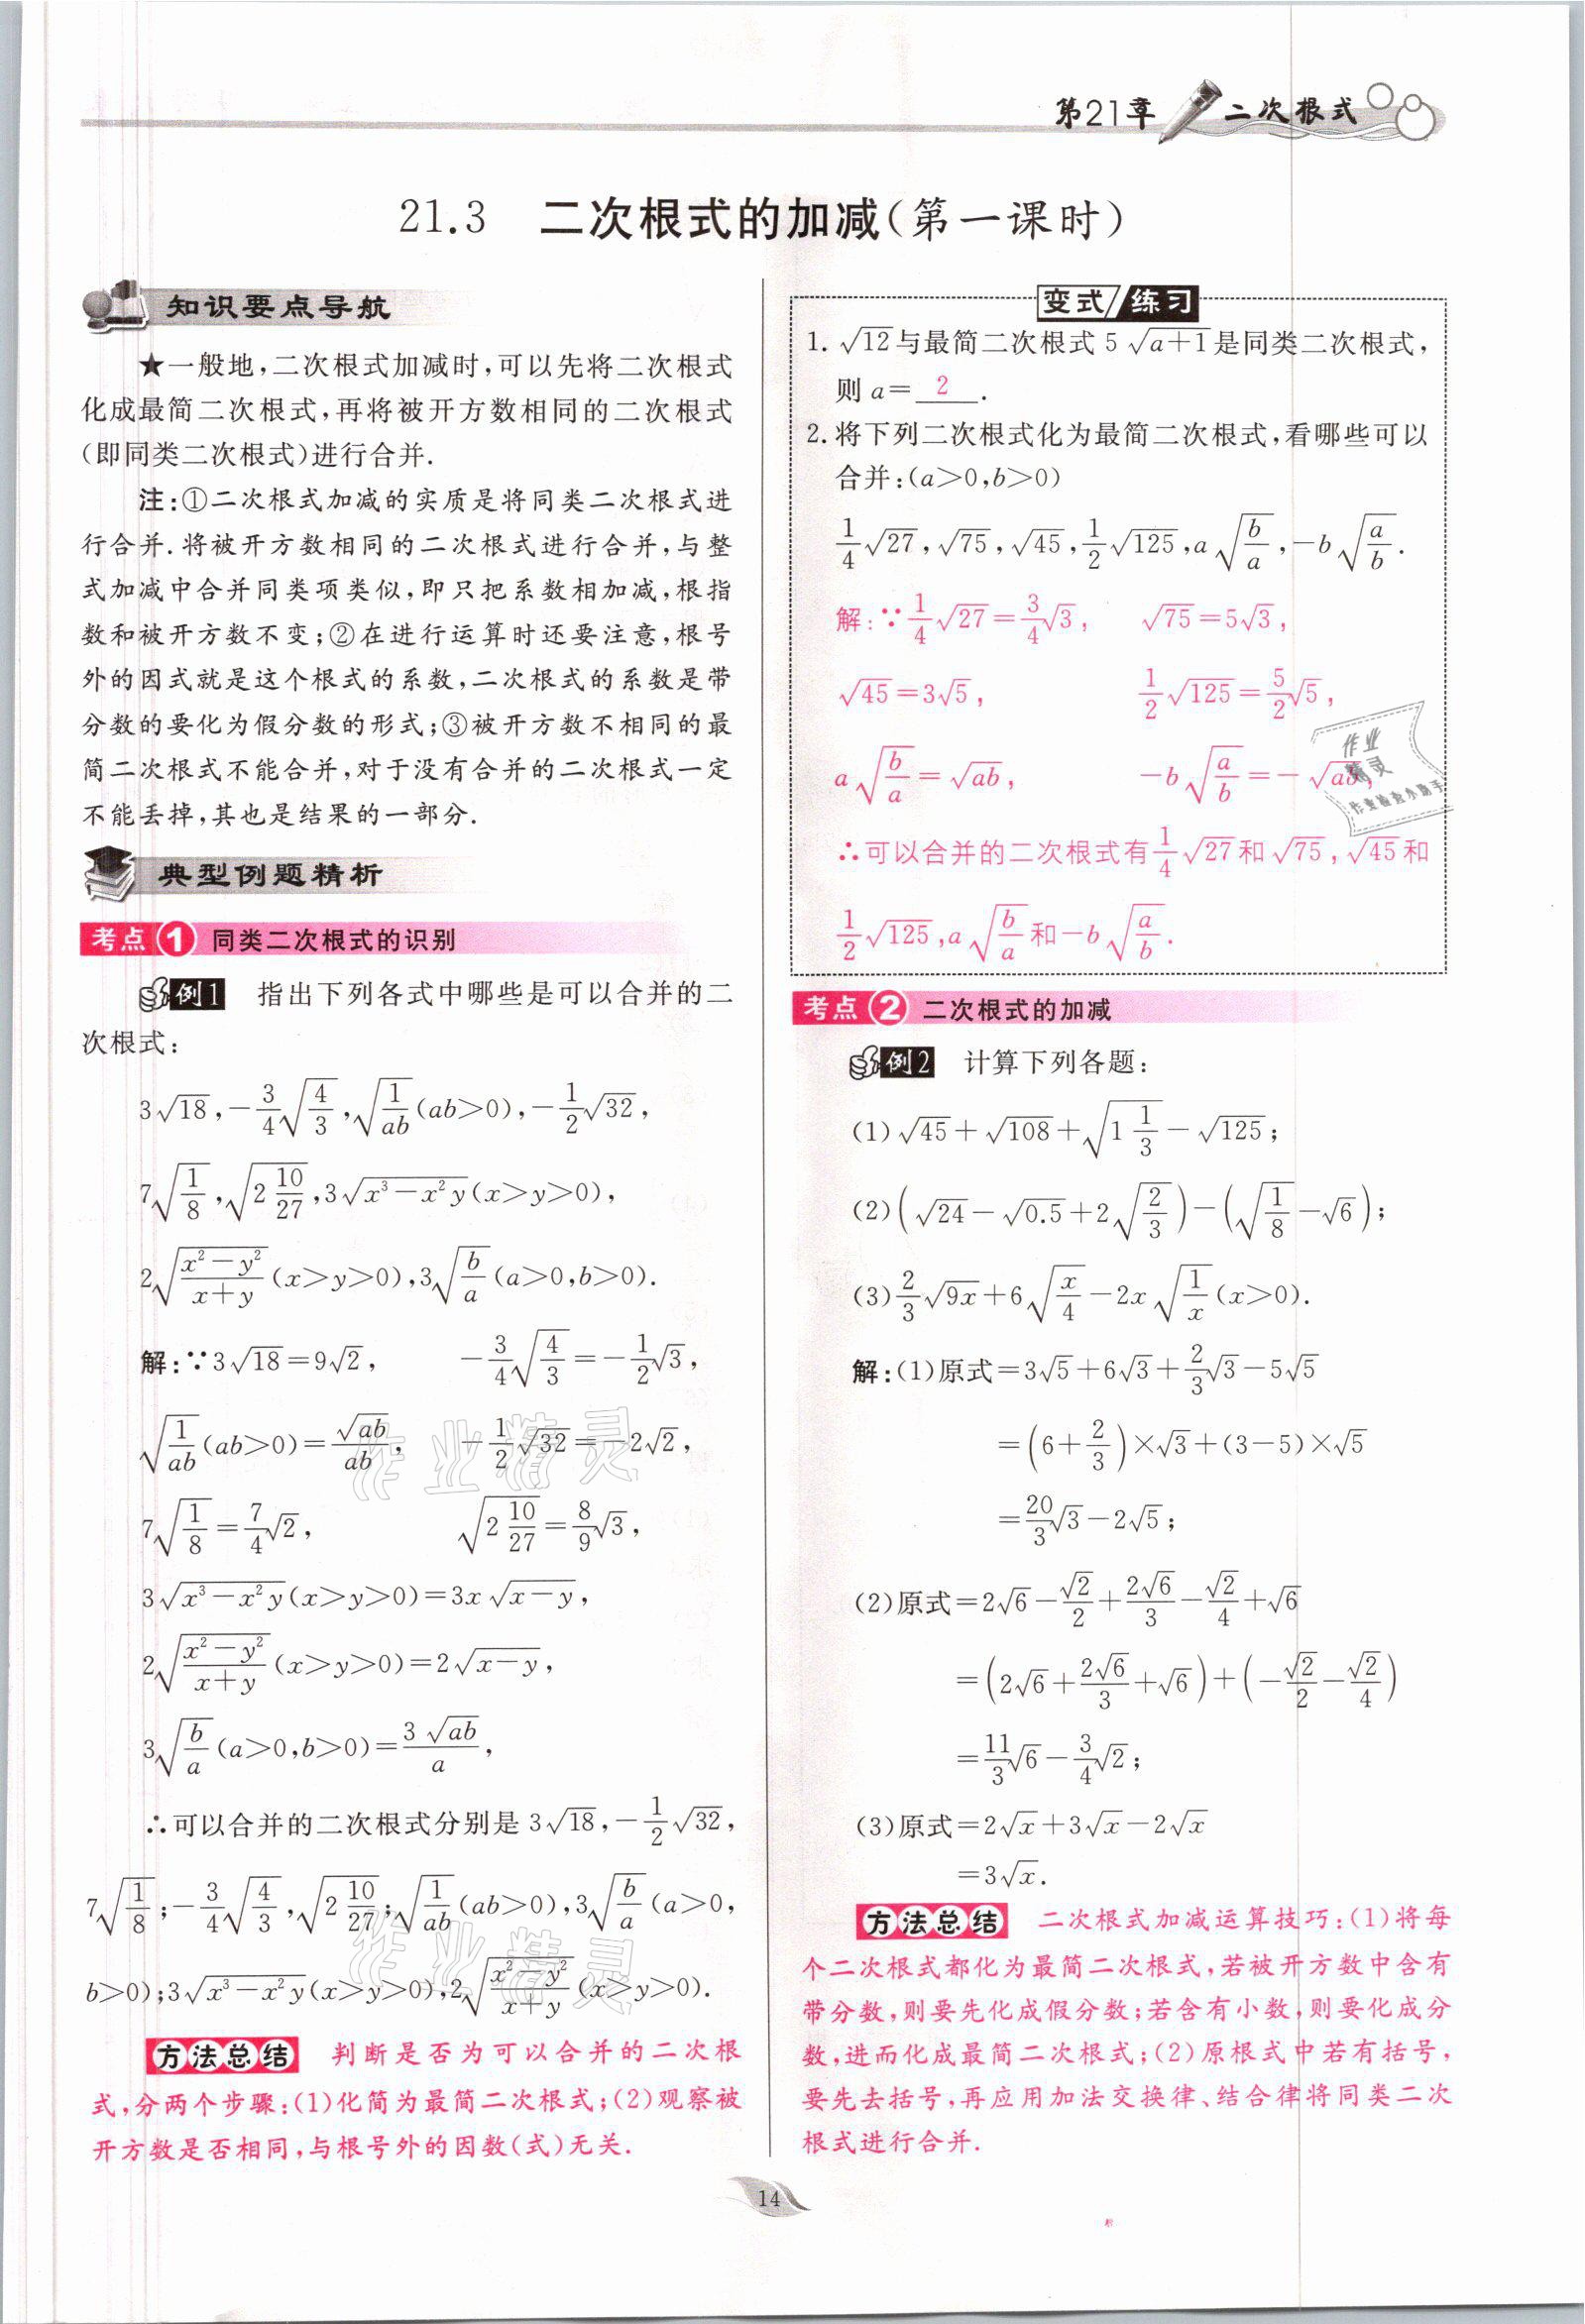 第21章 二次根式
21.3 二次根式的加减(第一课时)
知识要点导航
★一般地,二次根式加减时,可以先将二次根式
化成最简二次根式,再将被开方数相同的二次根式
(即同类二次根式)进行合并.
注:①二次根式加减的实质是将同类二次根式进
行合并.将被开方数相同的二次根式进行合并,与整
式加减中合并同类项类似,即只把系数相加减,根指
数和被开方数不变;②在进行运算时还要注意,根号
外的因式就是这个根式的系数,二次根式的系数是带
分数的要化为假分数的形式;③被开方数不相同的最
简二次根式不能合并,对于没有合并的二次根式一定
不能丢掉,其也是结果的一部分.
典型例题精析
考点1 同类二次根式的识别
例1 指出下列各式中哪些是可以合并的二
次根式:
3√18,-3/4√(4/3),√(1/ab)(ab>0),-1/2√32,
7√(1/8),√(2 10/27),3√(x³-x²y)(x>y>0),
2√((x²-y²)/(x+y))(x>y>0),3√(b/a)(a>0,b>0).
解:∵3√18=9√2, -3/4√(4/3)=-1/2√3,
√(1/ab)(ab>0)=√ab/ab, -1/2√32=-2√2,
7√(1/8)=7/4√2, √(2 10/27)=8/9√3,
3√(x³-x²y)(x>y>0)=3x√(x-y),
2√((x²-y²)/(x+y))(x>y>0)=2√(x-y),
3√(b/a)(a>0,b>0)=3√ab/a,
∴可以合并的二次根式分别是3√18,-1/2√32,
7√(1/8);-3/4√(4/3),√(2 10/27);√(1/ab)(ab>0),3√(b/a)(a>0,
b>0);3√(x³-x²y)(x>y>0),2√((x²-y²)/(x+y))(x>y>0).
方法总结 判断是否为可以合并的二次根
式,分两个步骤:(1)化简为最简二次根式;(2)观察被
开方数是否相同,与根号外的因数(式)无关.
变式/练习
1. √12与最简二次根式5√(a+1)是同类二次根式,
则a= 2 .
2. 将下列二次根式化为最简二次根式,看哪些可以
合并:(a>0,b>0)
1/4√27,√75,√45,1/2√125,a√(b/a),-b√(a/b).
解:∵1/4√27=3/4√3, √75=5√3,
√45=3√5, 1/2√125=5/2√5,
a√(b/a)=√ab, -b√(a/b)=-√ab,
∴可以合并的二次根式有1/4√27和√75,√45和
1/2√125,a√(b/a)和-b√(a/b).
作业
精灵
作业检查小助手
考点2 二次根式的加减
例2 计算下列各题:
(1)√45+√108+√(1 1/3)-√125;
(2)(√24-√0.5+2√(2/3))-(√(1/8)-√6);
(3)2/3√9x+6√(x/4)-2x√(1/x)(x>0).
解:(1)原式=3√5+6√3+2/3√3-5√5
=(6+2/3)×√3+(3-5)×√5
=20/3√3-2√5;
(2)原式=2√6-√2/2+2√6/3-√2/4+√6
=(2√6+2√6/3+√6)+(-√2/2-√2/4)
=11/3√6-3/4√2;
(3)原式=2√x+3√x-2√x
=3√x.
方法总结 二次根式加减运算技巧:(1)将每
个二次根式都化为最简二次根式,若被开方数中含有
带分数,则要先化成假分数;若含有小数,则要化成分
数,进而化成最简二次根式;(2)原根式中若有括号,
要先去括号,再应用加法交换律、结合律将同类二次
根式进行合并.
作业精灵
作业精灵
14